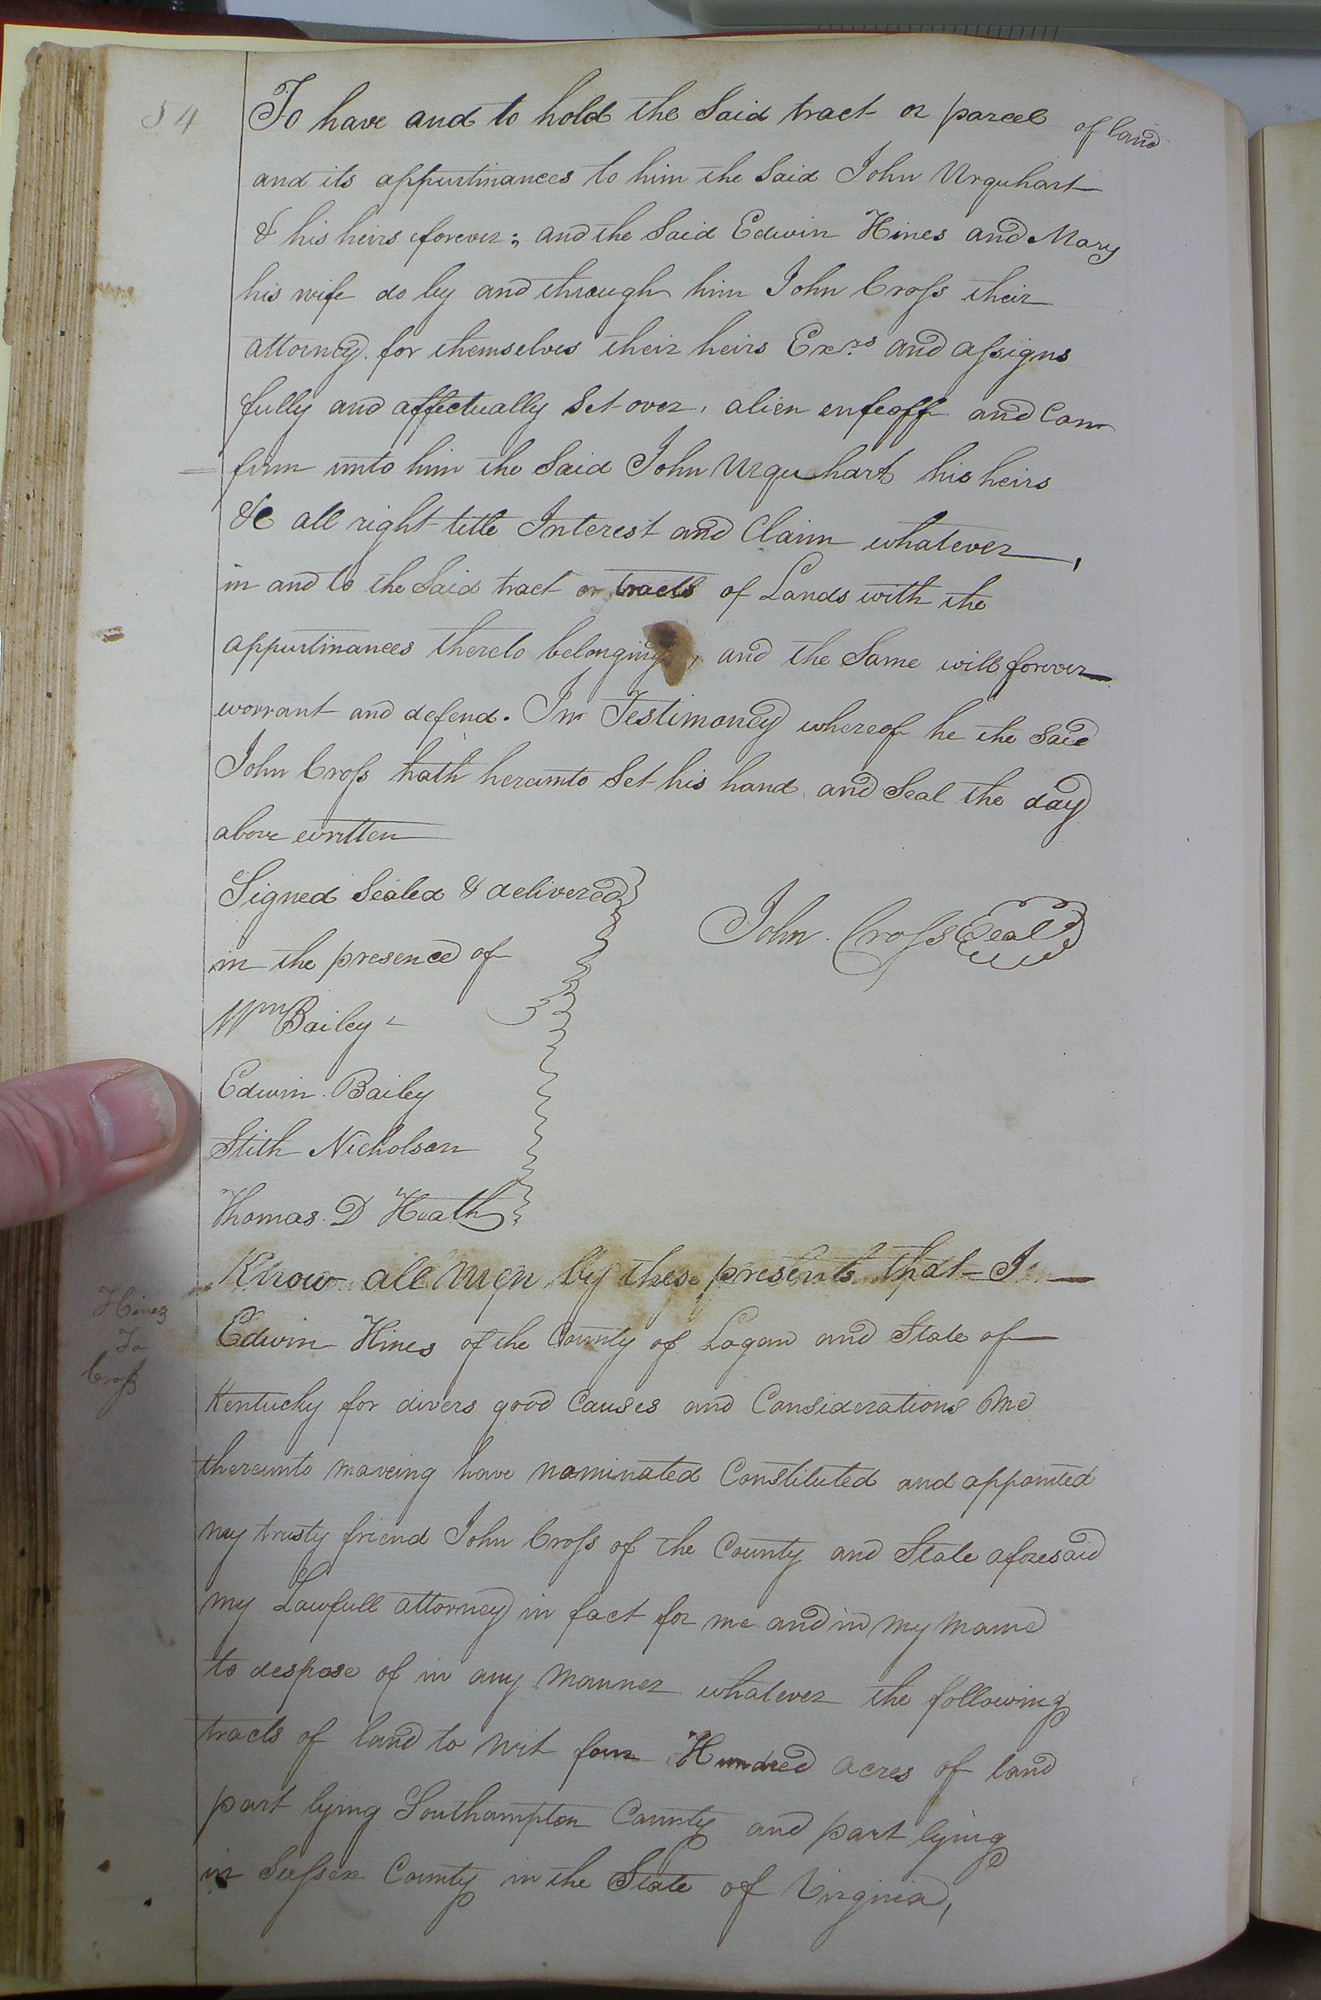 84
To have and to hold the Said tract or parcel of land
and its appurtinances to him the Said John Urquhart
& his heirs forever; and the Said Edwin Hines and Mary
his wife do by and through him John Cross their
attorney for themselves their heirs Exrs and assigns
fully and affectually Set over, alien enfeoff and Con
firm unto him the Said John Urquhart his heirs
&c all right title Interest and Claim whatever,
in and to the Said tract or tracts of Lands with the
appurtinances thereto belonging, and the Same will forever
warrant and defend. In Testimoney whereof he the Said
John Cross hath hereunto Set his hand and Seal the day
above written
Signed Sealed & delivered
in the presence of
John Cross Seal
Wm Bailey
Edwin Bailey
Stith Nicholson
Thomas D Heath
Know all men by these presents that I
Hines
To
Cross
Edwin Hines of the County of Logan and State of
Kentucky for divers good Causes and Considerations me
thereunto moveing have nominated Constituted and appointed
my trusty friend John Cross of the County and State aforesaid
my Lawfull attorney in fact for me and in my name
to despose of in any manner whatever the following
tracts of land to wit four Hundred acres of land
part lying Southampton County and part lying
in Sussex County in the State of Virginia,